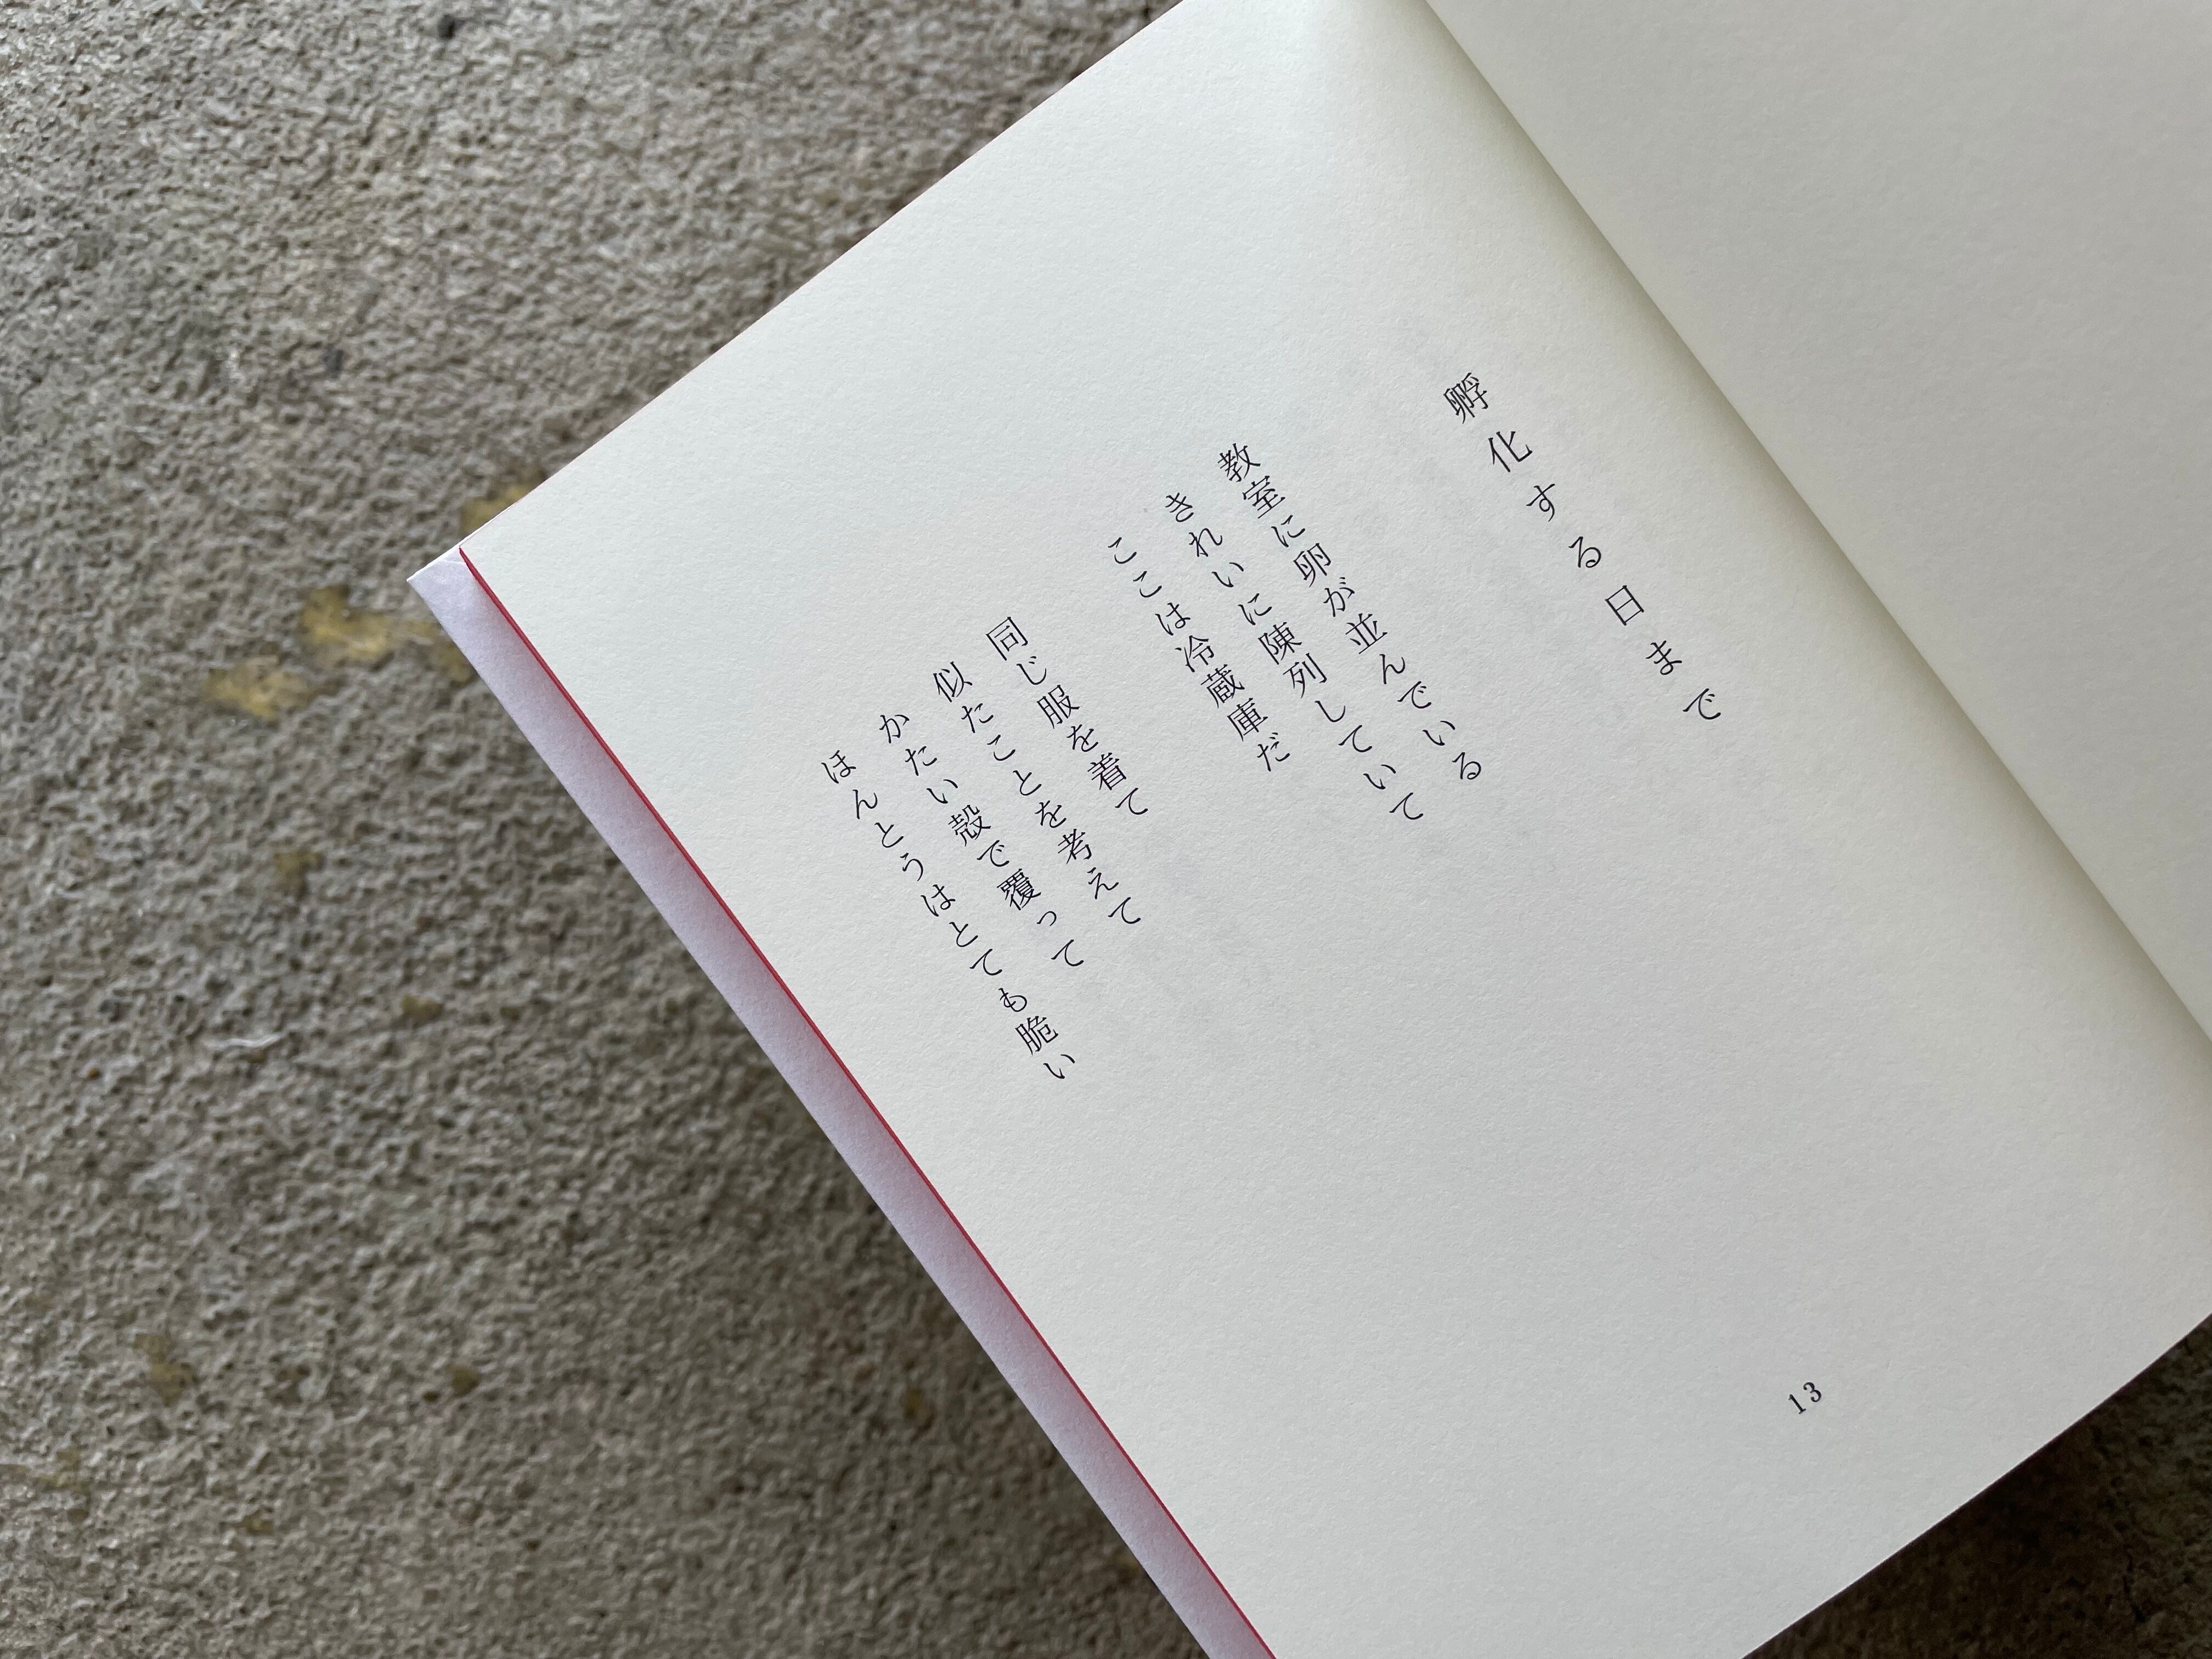 孵化する日まで
教室に卵が並んでいる
きれいに陳列していて
ここは冷蔵庫だ
同じ服を着て
似たことを考えて
かたい殻で覆って
ほんとうはとても脆い
13